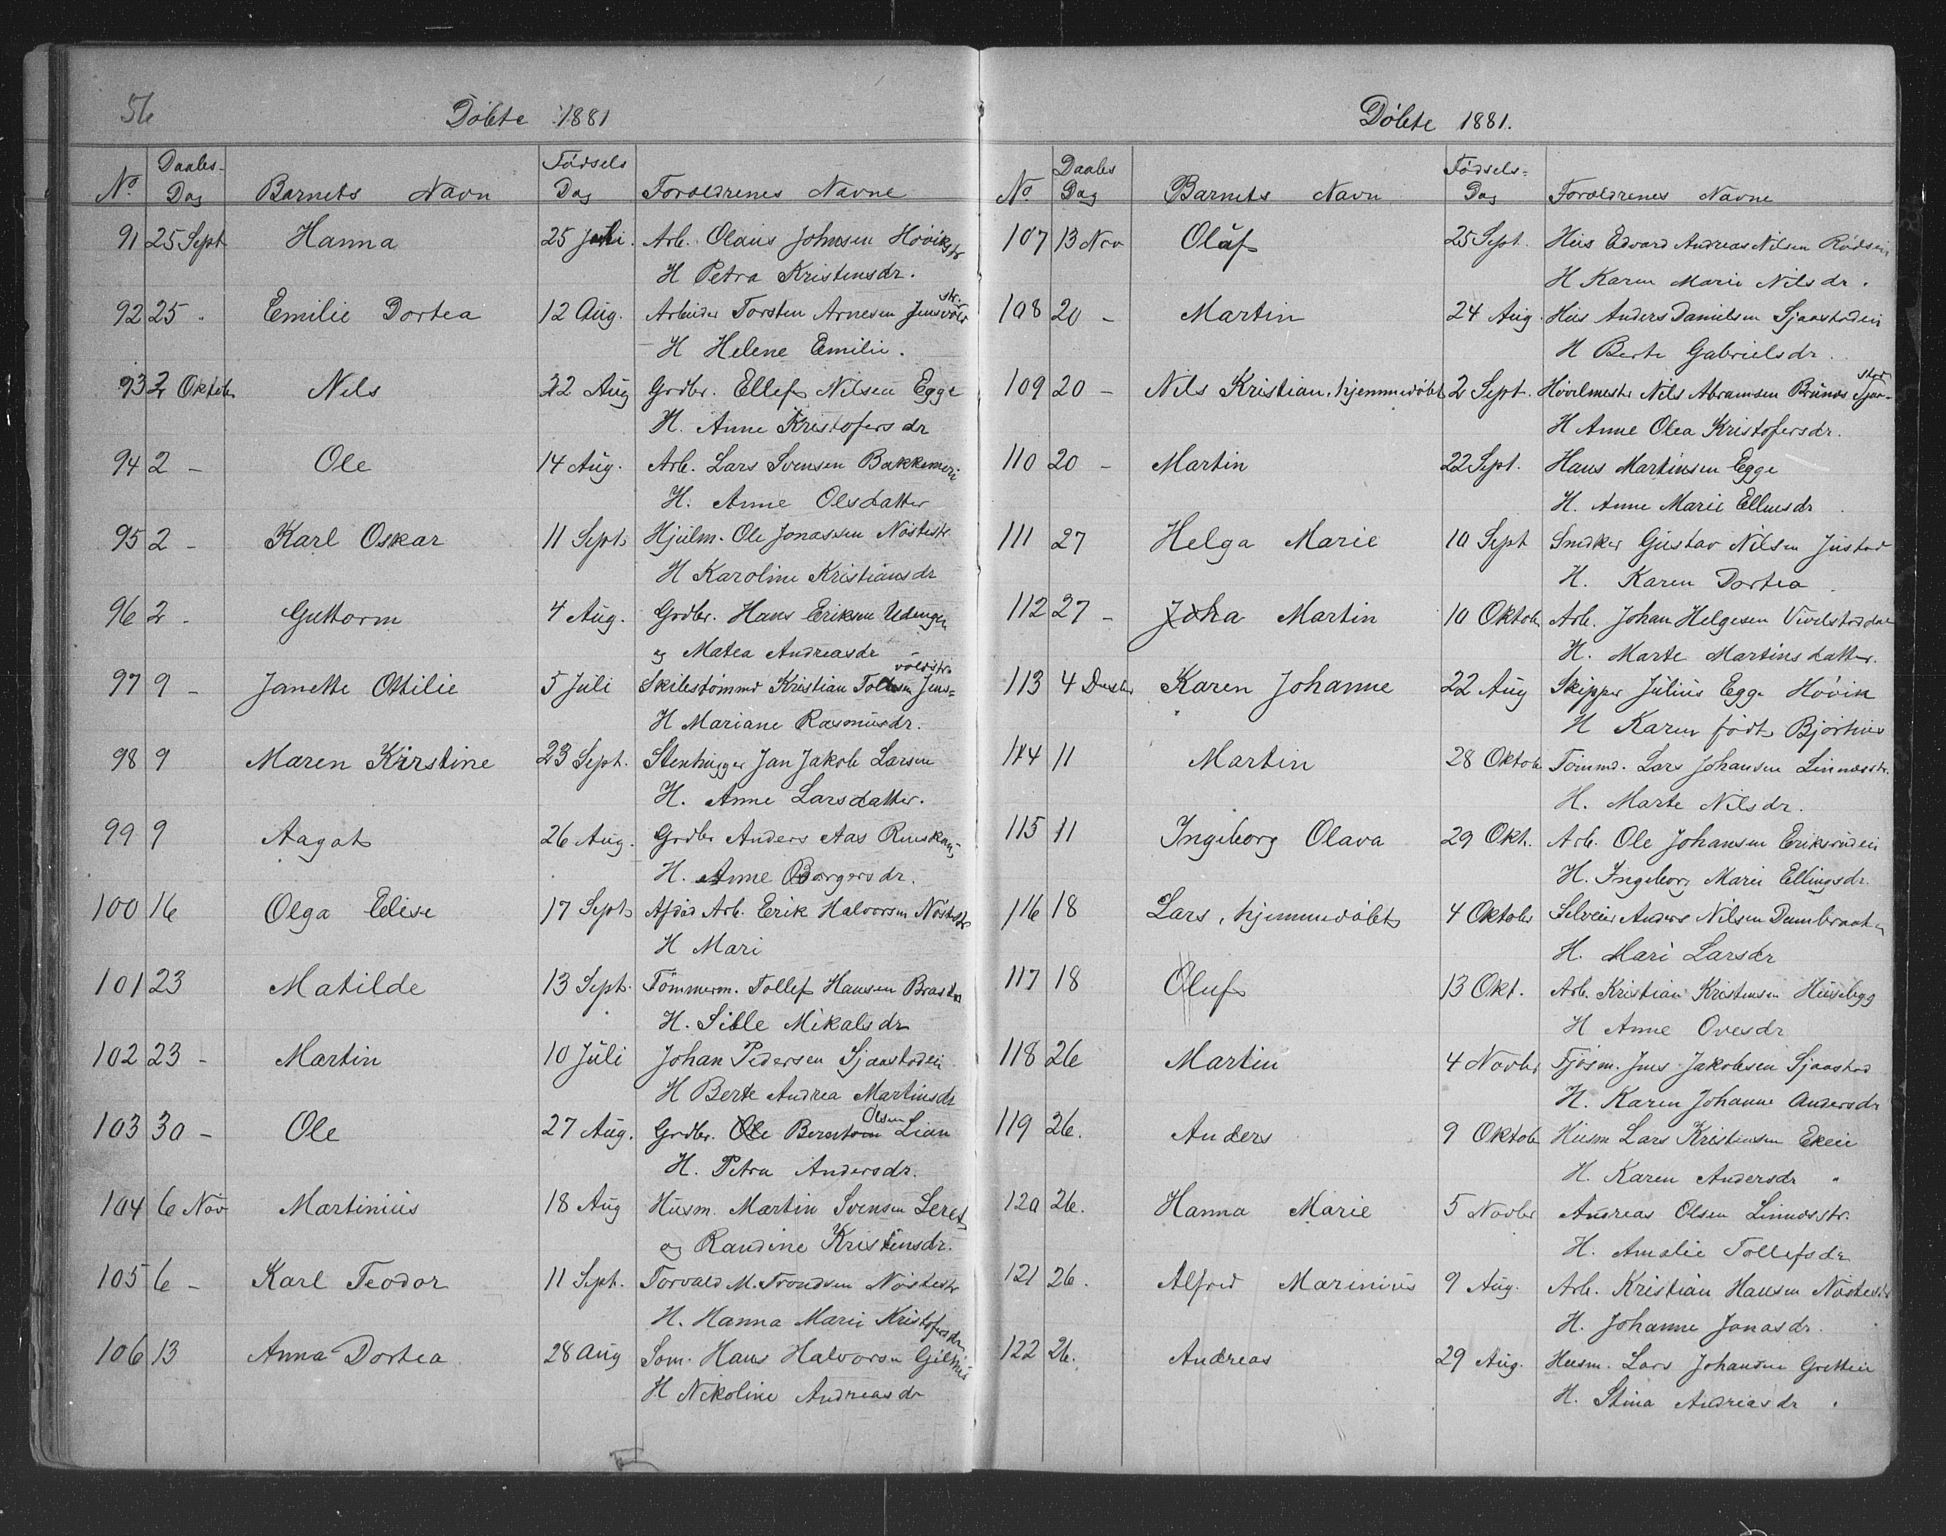 56
Döbte 1881
Daabs-
Fødsels
No Dag Barnets Navn Dag Forældrenes Navne
91 25 Sept Hanna 25 Juli. Arb. Olaus Johnsen Høvikstr
H Petra Kristensdr.
str.
92 25 Emilie Dortea 12 Aug. Arbeider Torsten Arnesen Jensvold
H Helene Emilie.
93 2 Oktob Nils 22 Aug Grdbr. Ellef Nilsen Egge
H. Anne Kristofersdr
94 2 - Ole 14 Aug. Arb. Lars Svensen
H. Anne Olsdatter
95 2 - Karl Oskar 11 Sept. Hjulm. Ole Jonassen Nøstestr
H Karoline Kristiansdr
96 2 - Guttorm 4 Aug. Grdbr. Hans Eriksen
og Matea Andreasdr
voldstr
97 9 - Janette Ottilie 5 Juli Kristian Jens-
H Mariane Rasmusdr.
98 9 Maren Kirstine 23 Sept. Stenhugger Jan Jakob Larsen
H. Anne Larsdatter.
99 9 Aagot 26 Aug. Grdbr Anders Aas
H. Anne Borgersdr.
100 16 Olga Elise 17 Sept. Afdød Arb. Erik Halvorsen Nøstestr
H Mari
101 23 Matilde 13 Sept. Tömmerm. Tollef Hansen
H. Sible Mikalsdr
102 23 - Martin 10 Juli Johan Pedersen Sjaastadei
H Berte Andrea Martinsdr
Olsen
103 30 - Ole 27 Aug. Grdbr. Ole Berntsen Lian
H. Petra Andersdr.
104 6 Nov Martinius 18 Aug Husm. Martin Svensen
og Randine Kristensdr.
105 6 - Karl Teodor 11 Sept. Torvald M. Trondsen Nøstestr
H. Hanna Marie Kristofersdr
106 13 Anna Dortea 28 Aug Søm. Hans Halvorsen
H Nikoline Andreasdr
Döbte 1881.
Daabs
Fødsels-
No Dag Barnets Navn Dag Forældrenes Navne
107 13 Nov Olaf 25 Sept. Hus Edvard Andreas Nilsen
H Karen Marie Nilsdr.
108 20 - Martin 24 Aug. Hus Anders Danielsen Sjaastadeii
H Berte Gabrielsdr.
stad
109 20 - Nils Kristian, hjemmedøbt 2 Sept. Nils Abramsen Sjaa-
H Anne Olea Kristofersdr.
110 20 - Martin 22 Sept. Hans Martinsen Egge
H. Anne Marie
111 27 Helga Marie 10 Sept Snedker Gustav Nilsen Justad
H. Karen Dortea
112 27 - Joha Martin 10 Oktob Arb. Johan Helgesen
H. Marte Martinsdatter.
113 4 Karen Johanne 22 Aug Skipper Julius Egge Høvik
H Karen født
114 11 Martin 28 Oktob Tømmd. Lars Johansen Linnesstr.
H. Marte Nilsdr.
115 11 Ingeborg Olava 29 Okt. Arb. Ole Johansen Eriksrudeii
H. Ingeborg Marie Ellingsdr.
116 18 Lars, hjemmedøbt 4 Oktobr Selveier Anders Nilsen
H. Mari Larsdr
117 18 Oluf 13 Okt. Arb. Kristian Kristensen
H Anne Ovesdr
118 26 Martin 4 Novbr Jens Jakobsen Sjaastad
H. Karen Johanne Andersdr
119 26. Anders 9 Oktob Husm Lars Kristensen Ekeie
H. Karen Andersdr
120 26. Hanna Marie 5 Novbr Andreas Olsen Linnesstr.
H. Amalie Tollefsdr
121 26. Alfred Marinius 9 Aug. Arb. Kristian Hansen Nøstestr
H. Johanne Jonasdr.
122 26. Andreas 29 Aug. Husm. Lars Johansen
H. Stina Andreasdr